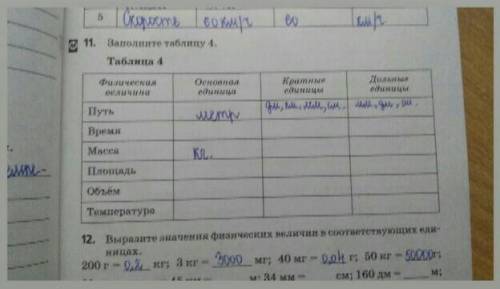 5 Скорость 60 км/ч 60 км/ч
11. Заполните таблицу 4.
Таблица 4
Физическая величина Основная единица Кратные единицы Дольные единицы
Путь метр
Время
Масса кг.
Площадь
Объём
Температура
12. Выразите значения физических величин в соответствующих еди-
ницах.
200 г = 0,2 кг; 3 кг = 3000 мг; 40 мг = 0,04 г; 50 кг = 50000 г;
м; 34 мм = см; 160 дм = м;